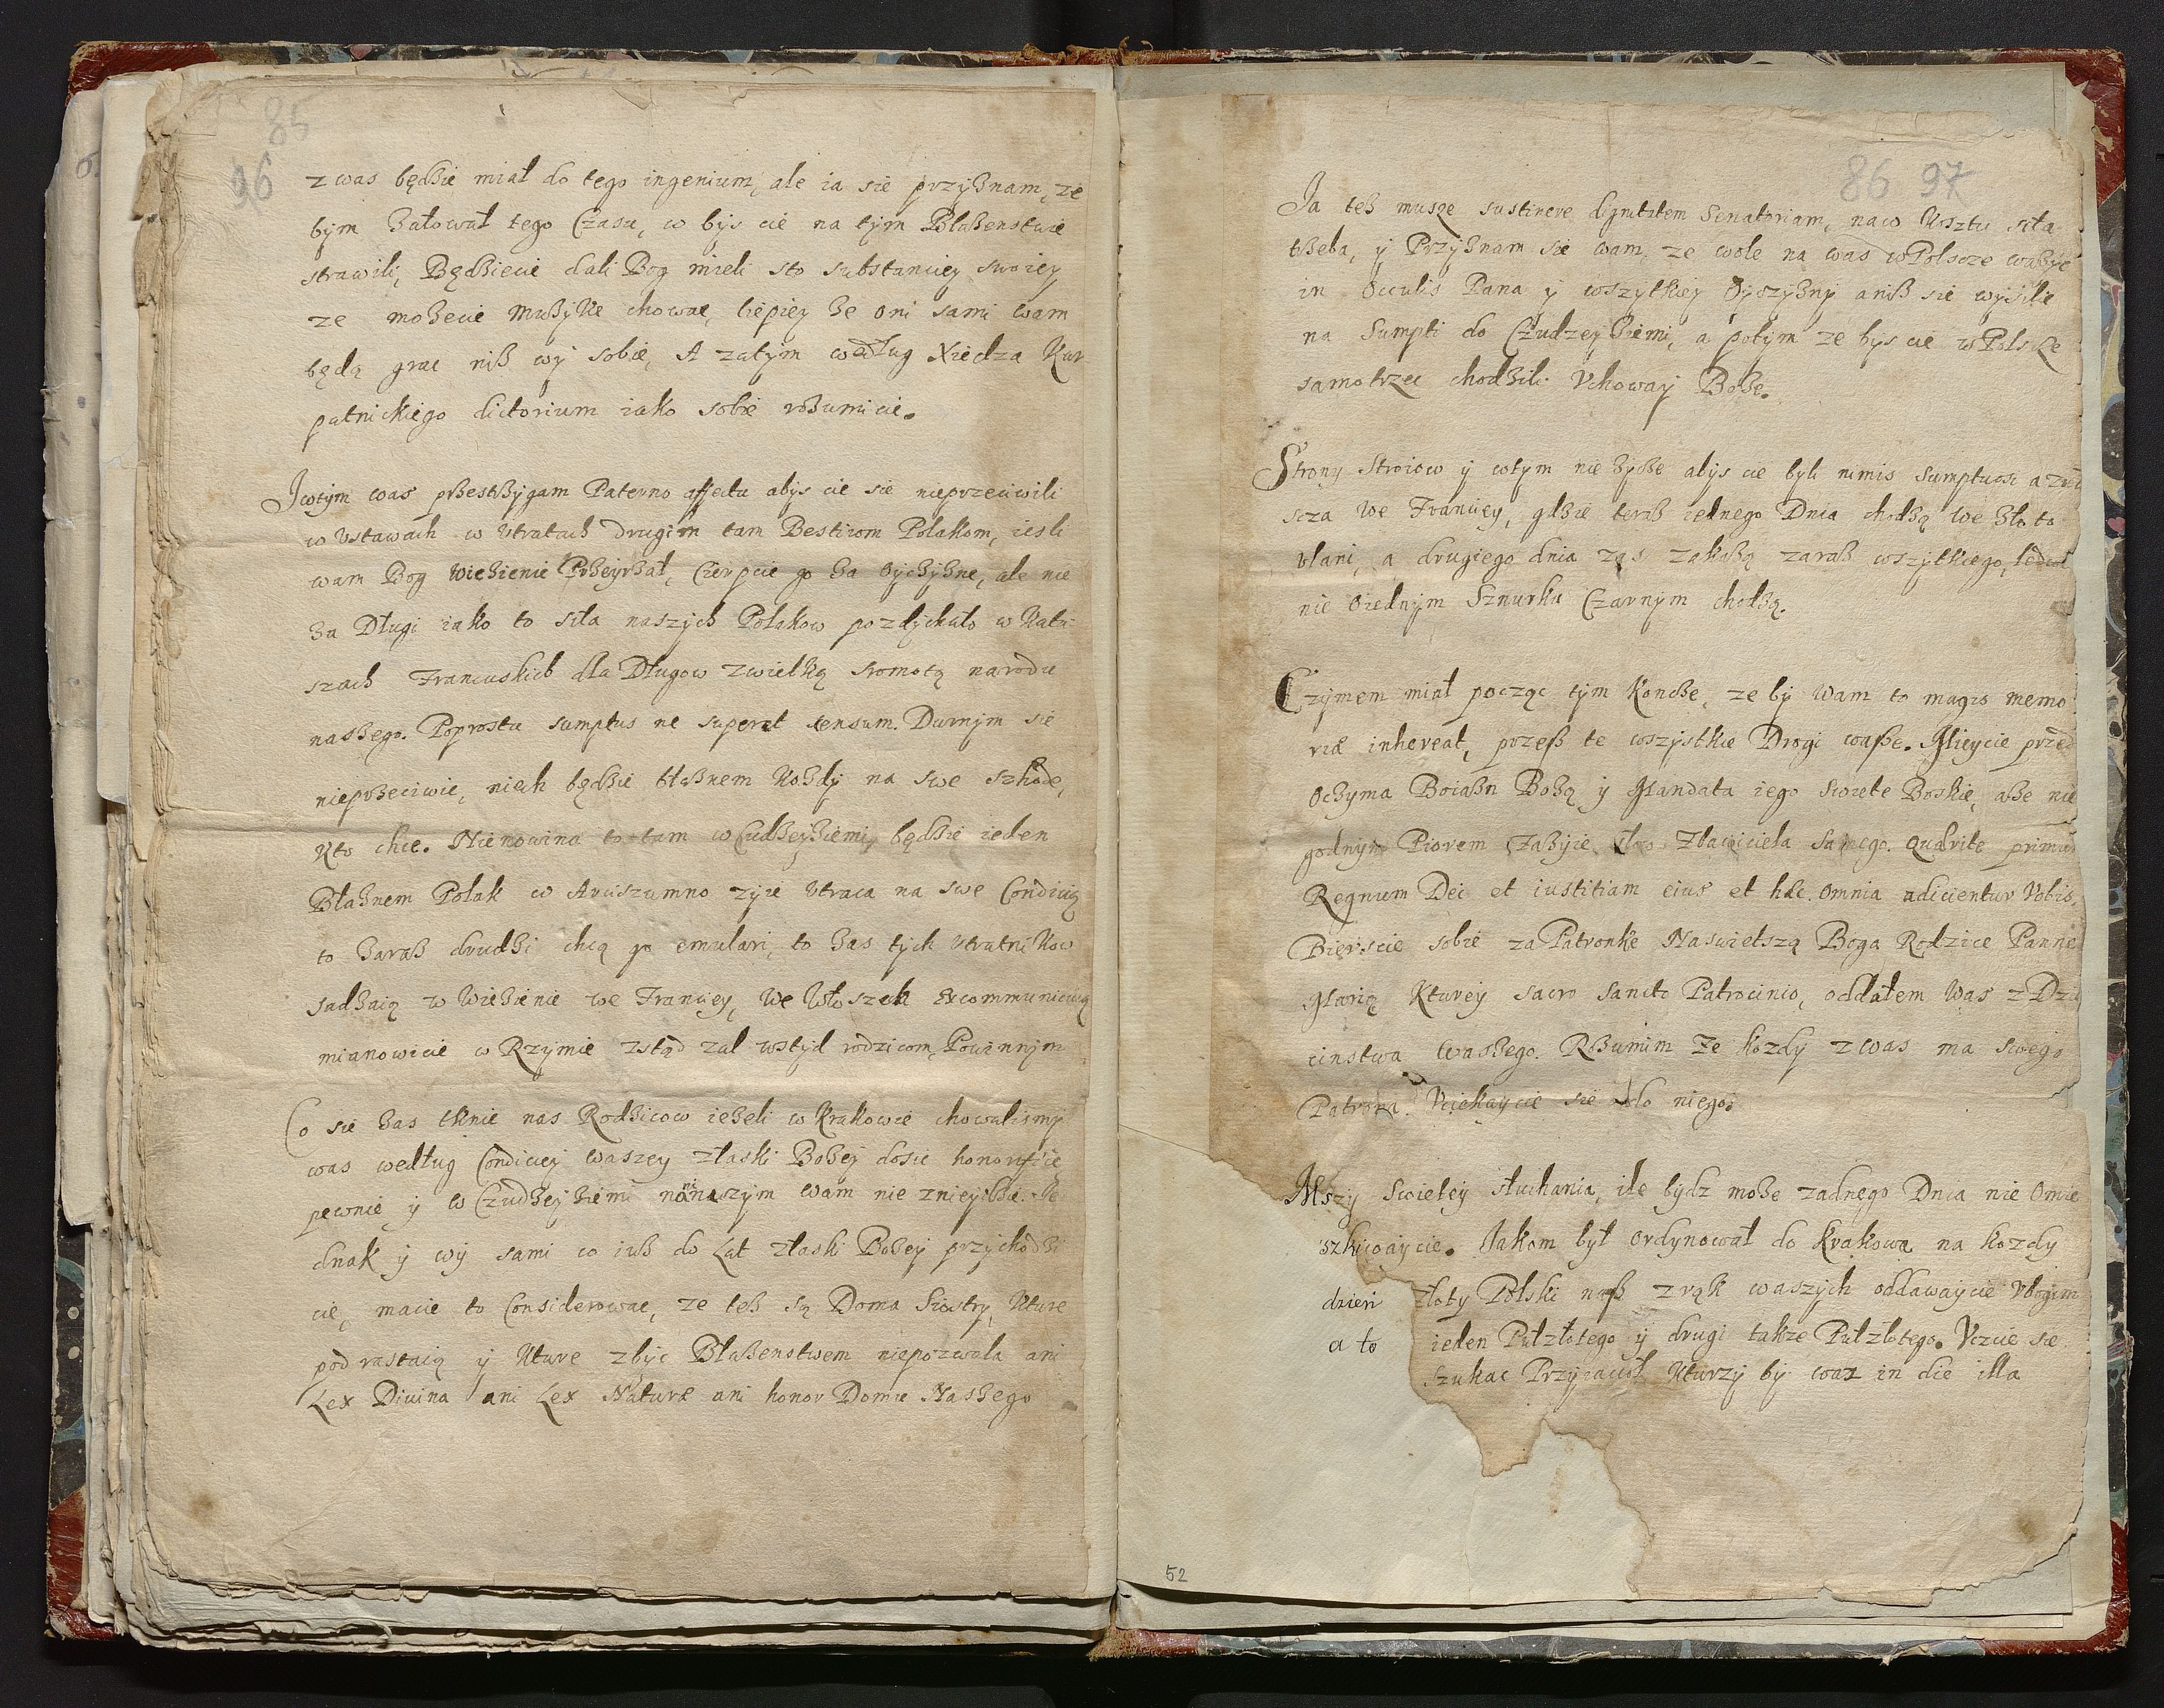 85
96
z was będzie miał do tego ingenium, ale ia sie przyznam, ze
bym załował tego Czasu, co bys cie na tym Błazenstwie
strawili, Będziecie dali Bog mieli sto substanciey swoiey
ze mozecie Muzyke chowac, liepiey ze oni sami wam
będą grac niz wy sobie, A zatym według Xiedza Kar
patnickiego dictorium iako sobie rozumicie.
Iwtym was przestrzygam Paterno affectu abys cie sie nieprzeciwili
w Ustawach w Utratach drugim tam Bestiiom Polakom, iesli
wam Bog Wiezienie Przeyrzał, Cierpcie go za Oyczyzne, ale nie
za Długi iako to siła naszych Polakow pozdychało w Katu-
szach Francuskich dla Długow z wielką sromotą narodu
naszego. Poprostu sumptus ne superet censum. Durnym sie
nieprzeciwic, niech będzie błaznem Kozdy na swe szkode,
Kto chce. Nienowina to tam w Cudzeyziemi, będzie ieden
Błaznem Polak co Arciszumno zyie Utraca na swe Condicią
to zaraz drudzi chcą go emulari, to zas tych utratnikow
sadzaią w Wiezienie we Franciey, We Włoszech Excommunicuią
mianowicie w Rzymie zstąd zal wstyd rodzicom, Powinnym
Co sie zas tknie nas Rodzicow iezeli w Krakowie chowalismy
was według Condiciey waszey złaski Bozey dosic honorificę
pewnie y w Czudzeyziemi na naszym wam nie znieydzie. Je
dnak y wy sami co iuz do Lat złaski Bozey przychodzi
cie, macie to Considerowac, ze tez są Doma Siostry, Kture
podrastaią y Kture zbyc Błazenstwem niepozwala ani
Lex Diuina ani Lex Naturæ ani honor Domu Naszego
86 97
Ja tez musze sustinere dignitatem Senatoriam, naco Kosztu siła
trzeba, y Przyznam sie wam, ze wole na was w Polscze wazyc
in Occulis Pana y wszytkiey Oyszyzny aniz sie wysilic
na Sumpti do Czudzey ziemi, a potym ze bys cie w Polsce
samotrzec chodzili Uchoway Boze.
Strony Stroiow y wtym nie zycze abys cie byli nimis sumptuosi a zwł
scza We Franciey, gdzie teraz iednego Dnia chodzą we złoto
ulani, a drugiego dnia zas zakażą zaraz wszytkiego, ledwo
nie Oiednym Sznurku Czarnym chodzą.
Czymem miał począc tym Koncze, ze by Wam to magis memo
riæ inhereat, przez te wszystkie Drogi wasze. Mieycie przed
Oczyma Boiazn Bozą y Mandata iego Swiete Boskie, abe nie
godnym Piorem zazyie samego. Quærite primu
Regnum Dei et iustitiam eius et hæc omnia adicientur Vobis,
Bierscie sobie za Patronke Naswietszą Boga Rodzice Pannę
Marią Kturey sacro sancto Patrocinio, oddałem Was z Dzie
cinstwa Waszego. Rozumim Ze kozdy z was ma swego
Patrona. Uciekaycie sie do niego.
Mszy Swietey słuchania, ile bydz moze zadnego Dnia nie Omie
szkiwaycie. Jakom był ordynował do Krakowa na kozdy
dzien złoty Polski nasz z rąk waszych oddawaycie Ubogim
a to ieden Pułzłotego y drugi takze Pułzłotego. Uczcie sie
szukac Przyiacioł Kturzy by was in die illa
52